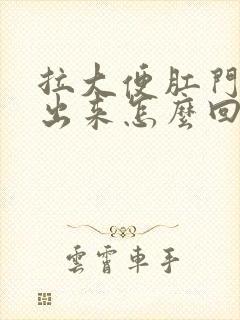 拉大便肛門
出来怎麼回
雲霄車手